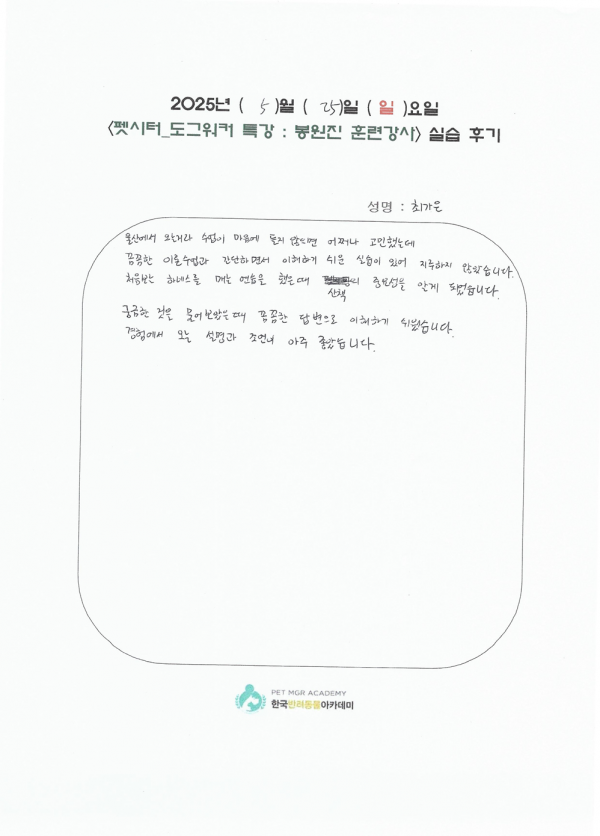 2025년 ( 5 )월 ( 25 )일 ( 일 )요일
<펫시터_도그워커 특강 : 봉원진 훈련강사> 실습 후기
성명 : 최가은
울산에서 오는거라 수업이 마음에 들지 않으면 어쩌나 고민했는데
꼼꼼한 이론수업과 간단하면서 이해하기 쉬운 실습이 있어 지루하지 않았습니다.
처음보는 하네스를 매는 연습을 했을때 의 중요성을 알게 되었습니다.
산책
궁금한 것을 물어보았을때 꼼꼼한 답변으로 이해하기 쉬웠습니다.
경험에서 오는 설명과 조언이 아주 좋았습니다.
PET MGR ACADEMY
한국반려동물아카데미